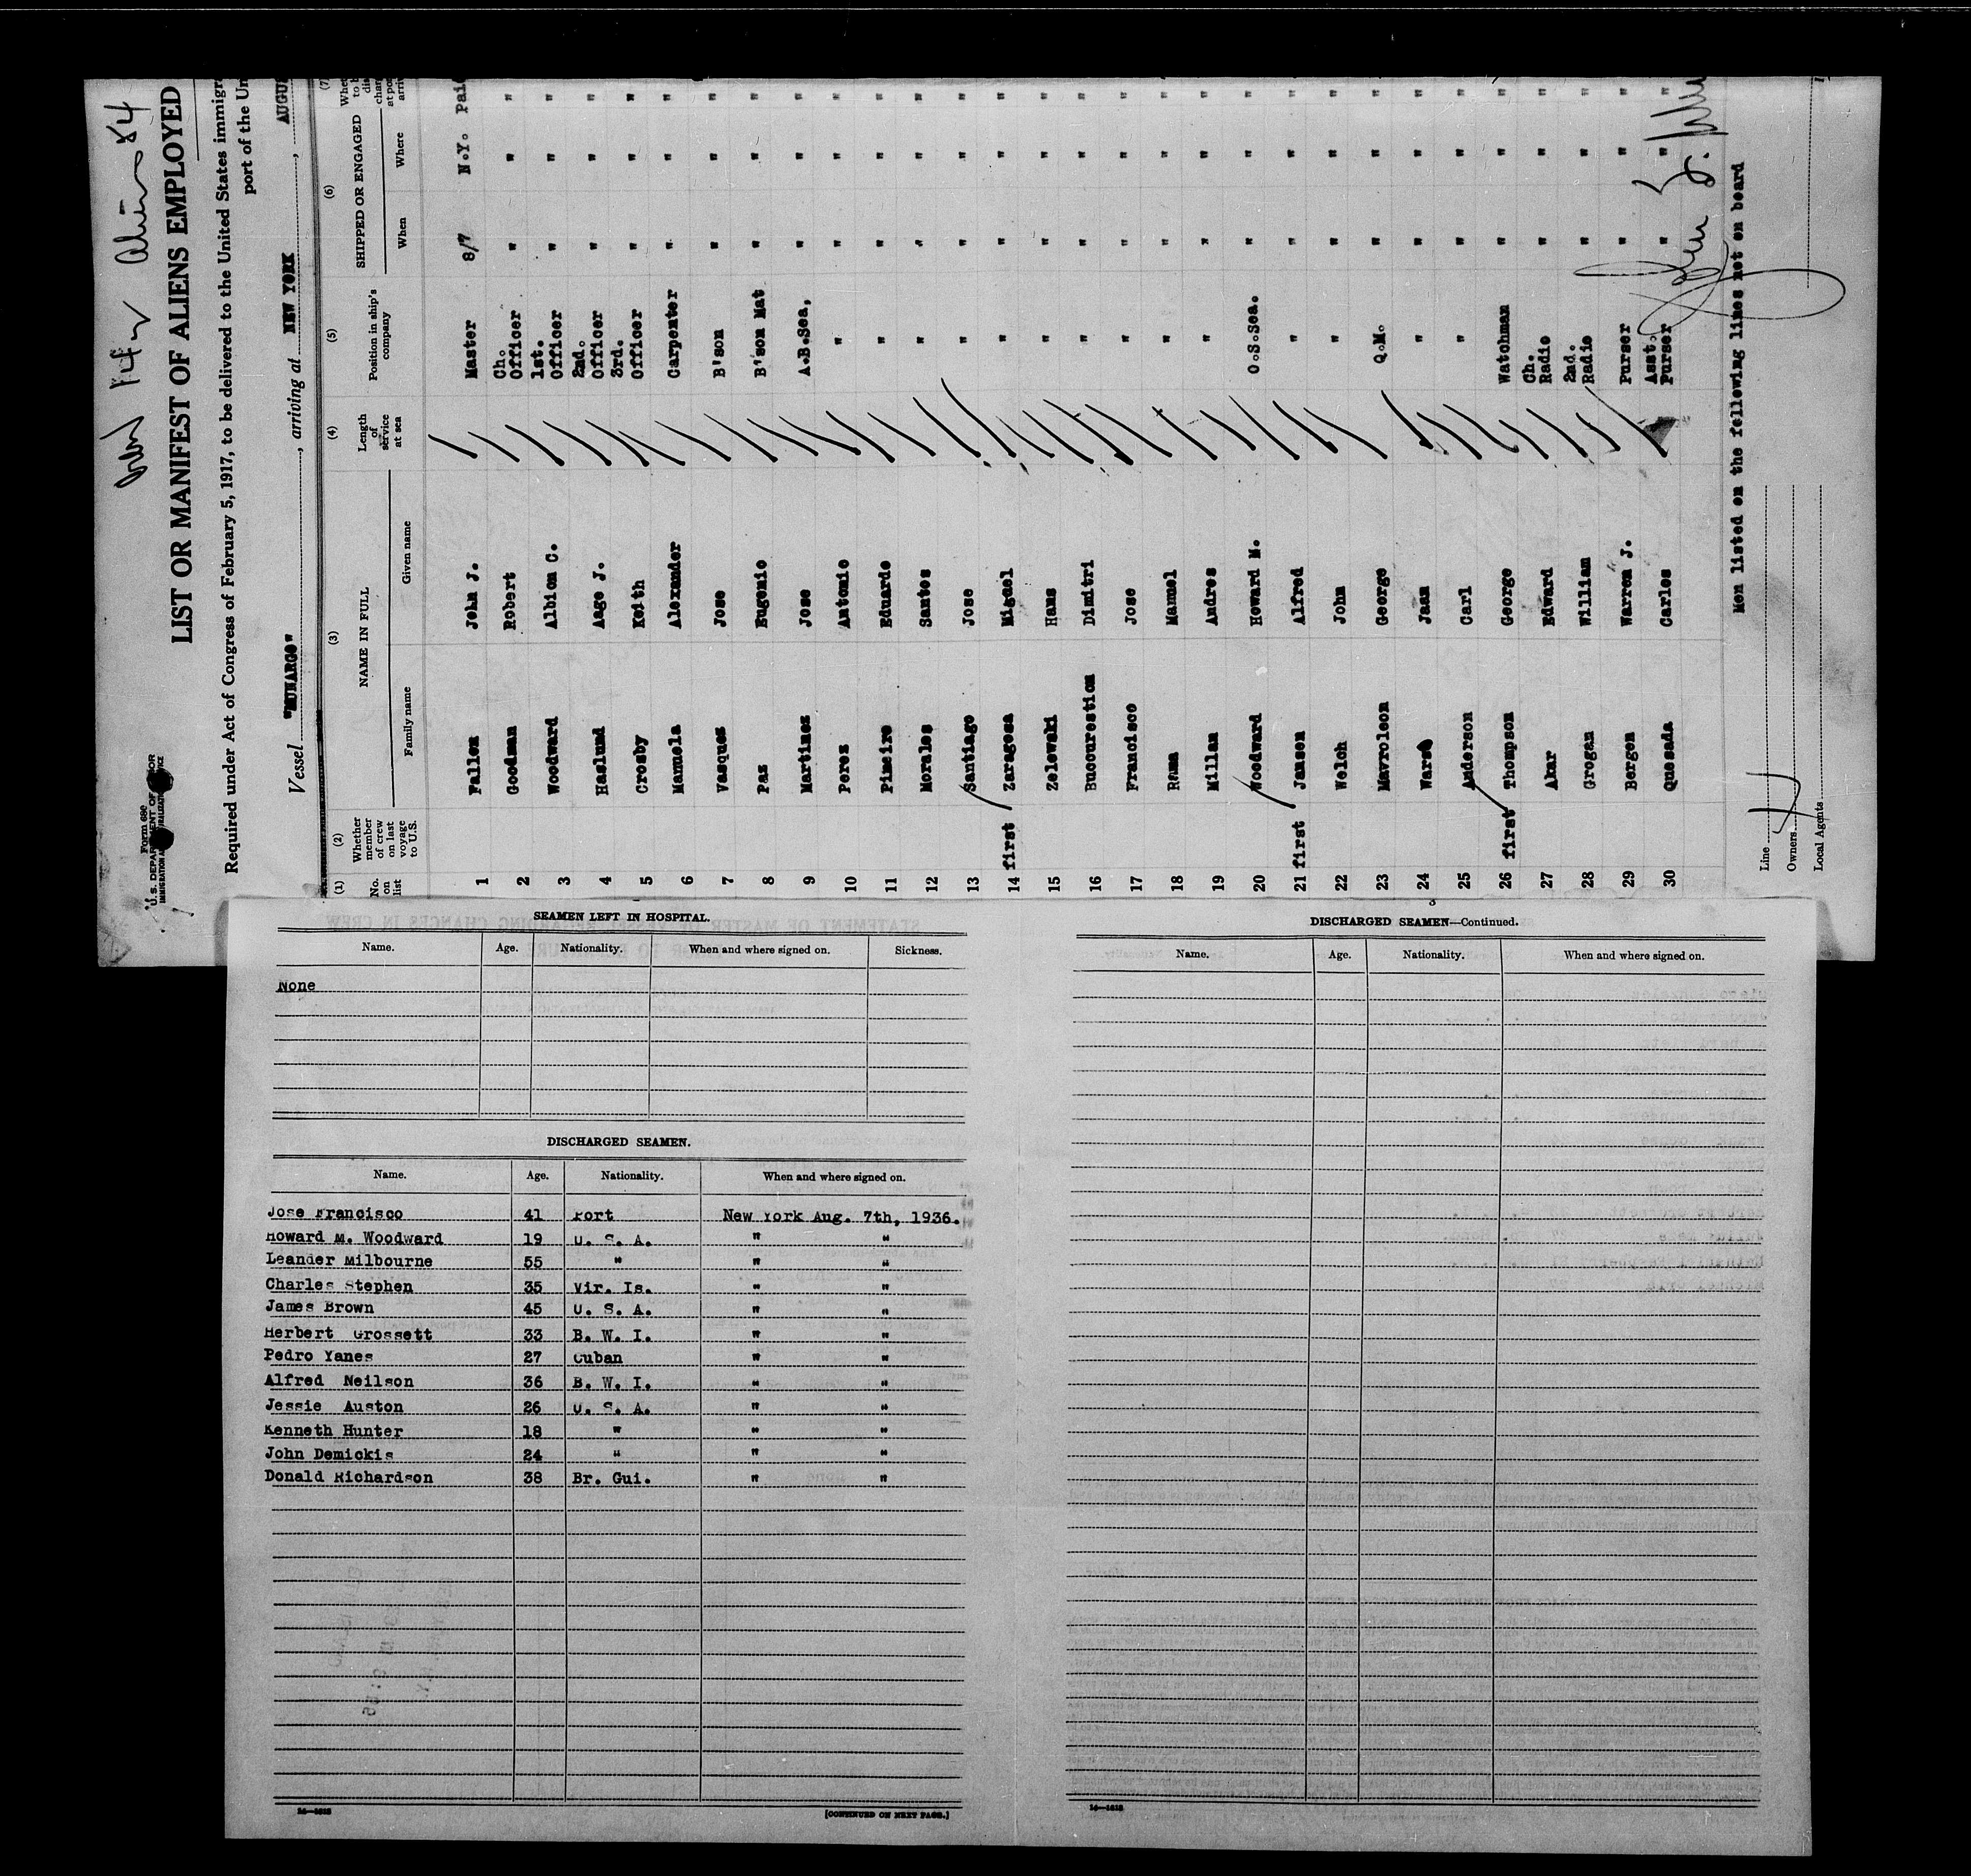 Form 680
U. S. DEPARTMENT OF LABOR
LIST OR MANIFEST OF ALIENS EMPLOYED
Required under Act of Congress of February 5, 1917, to be delivered to the United States immigr
port of the Un
Vessel "MUNARGO", arriving at NEW YORK, AUGU
(1) (2) (3) (4) (5) (6) (7)
No. on list
Whether member of crew on last voyage to U.S.
NAME IN FULL
Family name Given name
Length of service at sea
Position in ship's company
SHIPPED OR ENGAGED
When Where
1 Fallon John J. Master 8/7 N.Y. Pai
2 Goodman Robert Ch. Officer " " "
3 Woodward Albion C. 1st. Officer " " "
4 Haslund Aage J. 2nd. Officer " " "
5 Crosby Keith 3rd. Officer " " "
6 Manuela Alexander Carpenter " " "
7 Vasquez Jose B'son " " "
8 Paz Eugenio B'son Mat " " "
9 Martinez Jose A.B.Sea. " " "
10 Perez Antonio " " " "
11 Pineiro Eduardo " " " "
12 Morales Santos " " " "
13 Santiago Jose " " " "
14 first Zaragosa Miguel " " " "
15 Zelewski Hans " " " "
16 Bucourestion Dimitri " " " "
17 Francisco Jose " " " "
18 Rama Manuel " " " "
19 Millan Andres " " " "
20 Woodward Howard M. O.S.Sea. " " "
21 first Jansen Alfred " " " "
22 Welch John " " " "
23 Mavroleon George Q.M. " " "
24 Jaan " " " "
25 Anderson Carl " " " "
26 first Thompson George Watchman " " "
27 Akar Edward Ch. Radio " " "
28 Grogan William 2nd. Radio " " "
29 Bergen Warren J. Purser " " "
30 Quesada Carlos Asst. Purser " " "
Men listed on the following lines not on board
Line
Owners
Local Agents
SEAMEN LEFT IN HOSPITAL.
Name. Age. Nationality. When and where signed on. Sickness.
None
DISCHARGED SEAMEN.
Name. Age. Nationality. When and where signed on.
Jose Francisco 41 Port New York Aug. 7th, 1936.
Howard M. Woodward 19 U. S. A. " "
Leander Milbourne 55 " " "
Charles Stephen 35 Vir. Is. " "
James Brown 45 U. S. A. " "
Herbert Grossett 33 B. W. I. " "
Pedro Yanes 27 Cuban " "
Alfred Neilson 36 B. W. I. " "
Jessie Auston 26 U. S. A. " "
Kenneth Hunter 18 " " "
John Demickis 24 " " "
Donald Richardson 38 Br. Gui. " "
14—1618
[CONTINUED ON NEXT PAGE.]
3
DISCHARGED SEAMEN—Continued.
Name. Age. Nationality. When and where signed on.
14—1618